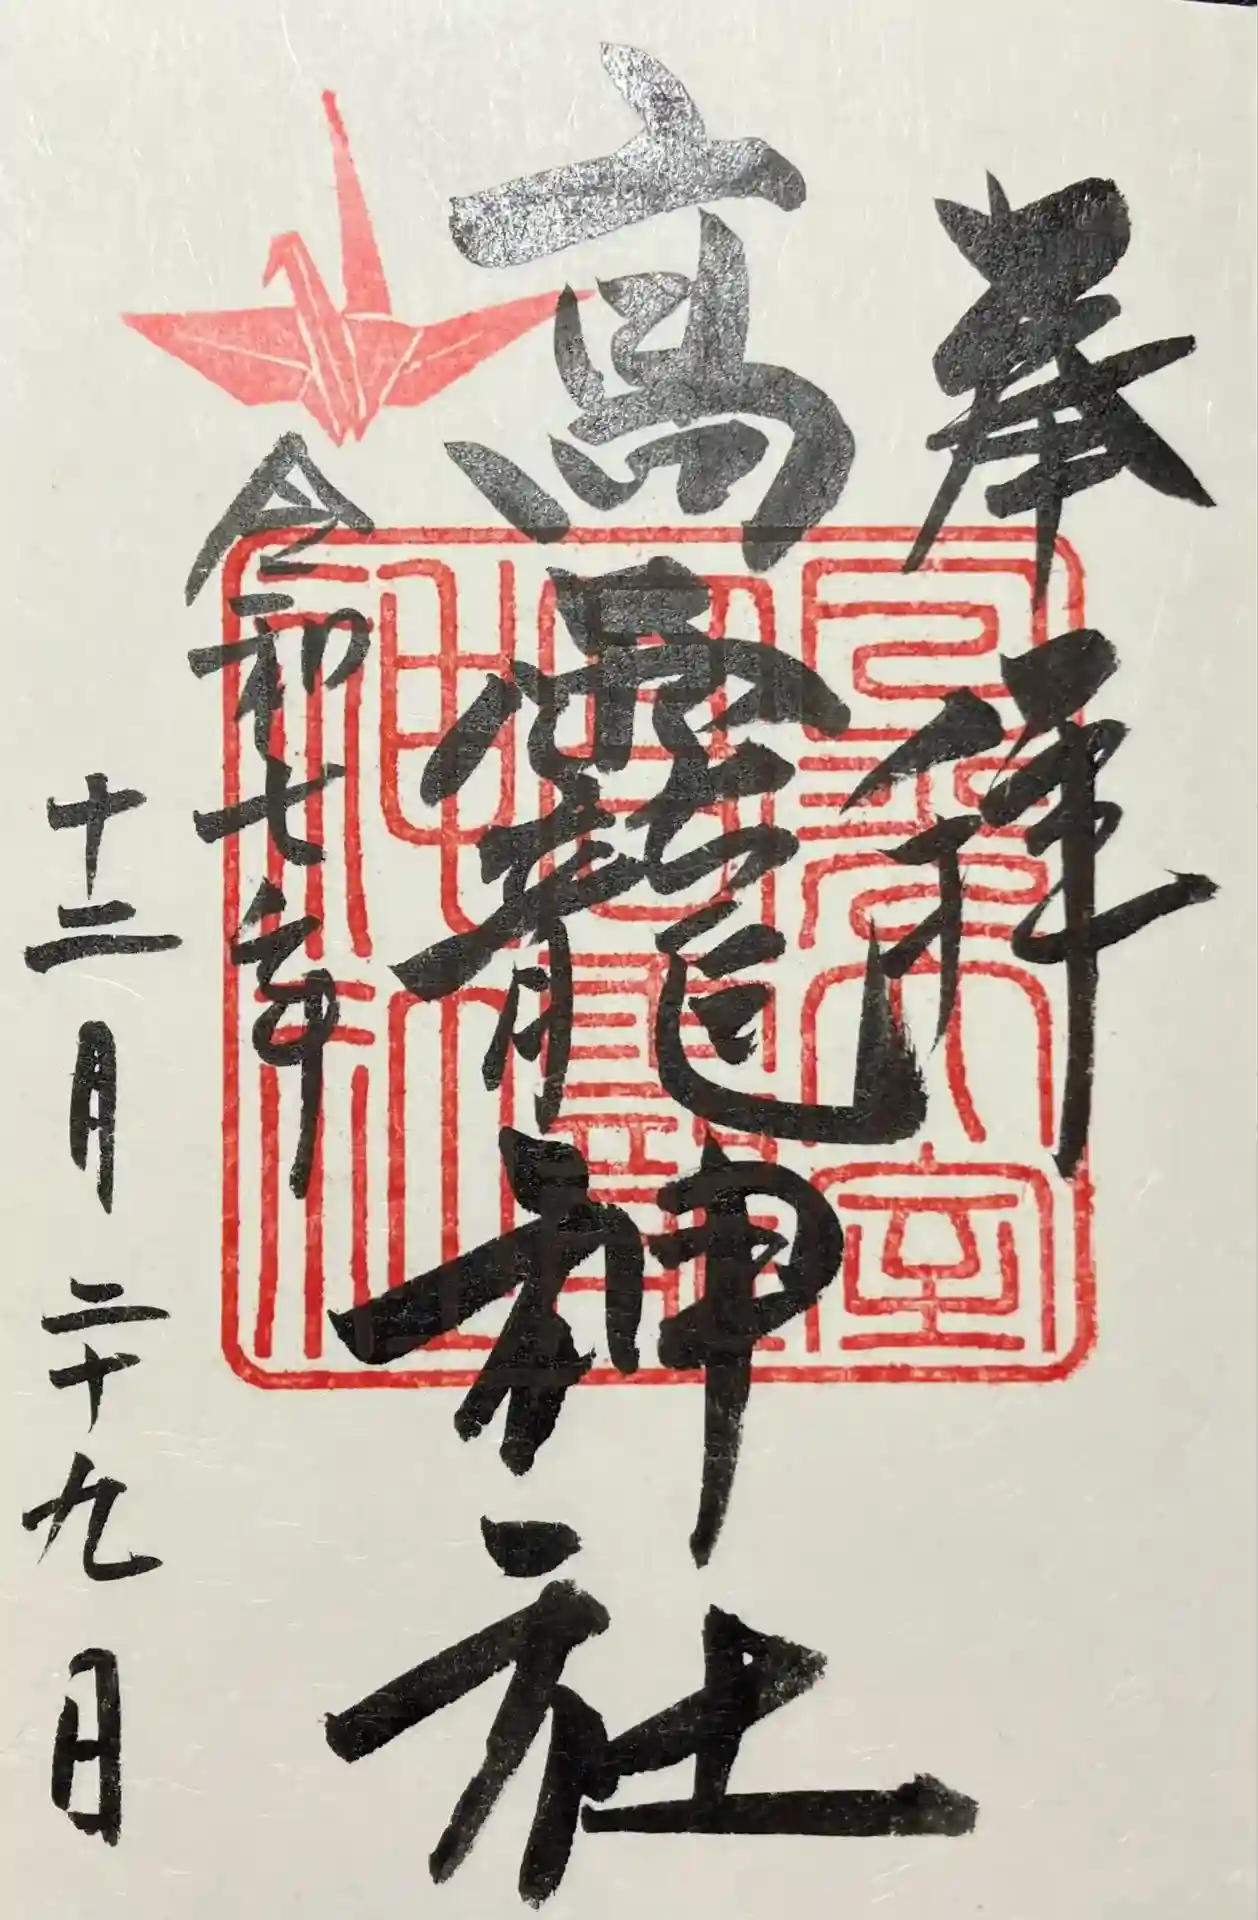 奉拝
高龗神社
令和七年
十二月二十九日
日光大室
高龗
神社